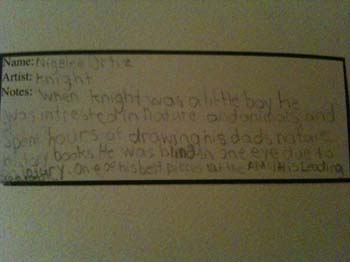 Name: Nigelee Ortiz
Artist: Knight
Notes: When knight was a little boy he
was intrested in nature and animals and
spent hours of drawing his dads nature
history books. He was blind in one eye due to
injury. One of his best pieces at the is his Leading